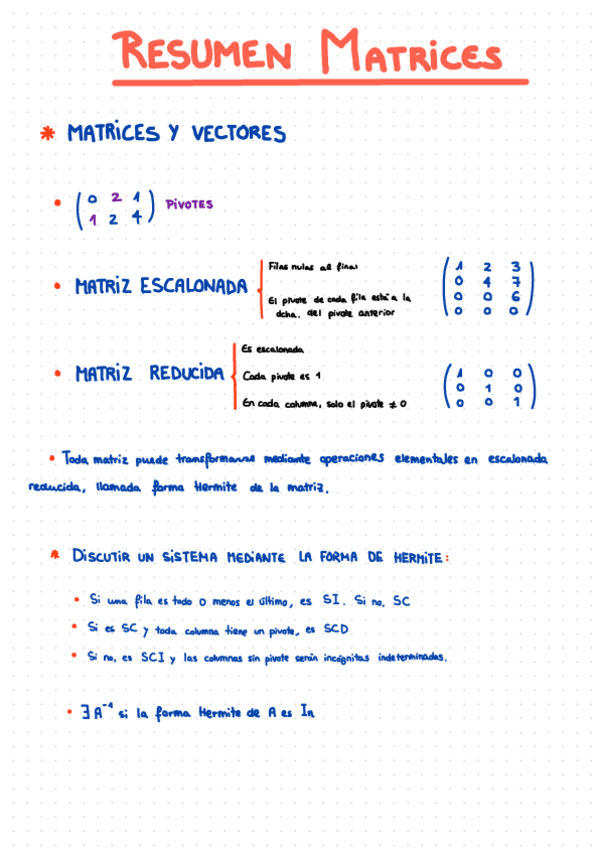 RESUMEN MATRICES
* MATRICES Y VECTORES
• ( 0 2 1 ) PIVOTES
( 1 2 4 )
• MATRIZ ESCALONADA
Filas nulas al final
El pivote de cada fila está a la
dcha. del pivote anterior
( 1 2 3 )
( 0 4 7 )
( 0 0 6 )
( 0 0 0 )
• MATRIZ REDUCIDA
Es escalonada
Cada pivote es 1
En cada columna, solo el pivote ≠ 0
( 1 0 0 )
( 0 1 0 )
( 0 0 1 )
• Toda matriz puede transformarse mediante operaciones elementales en escalonada
reducida, llamada forma Hermite de la matriz.
* DISCUTIR UN SISTEMA MEDIANTE LA FORMA DE HERMITE:
• Si una fila es todo 0 menos el último, es SI. Si no, SC
• Si es SC y toda columna tiene un pivote, es SCD
• Si no, es SCI y las columnas sin pivote serán incógnitas indeterminadas.
• ∃ A⁻¹ si la forma Hermite de A es In